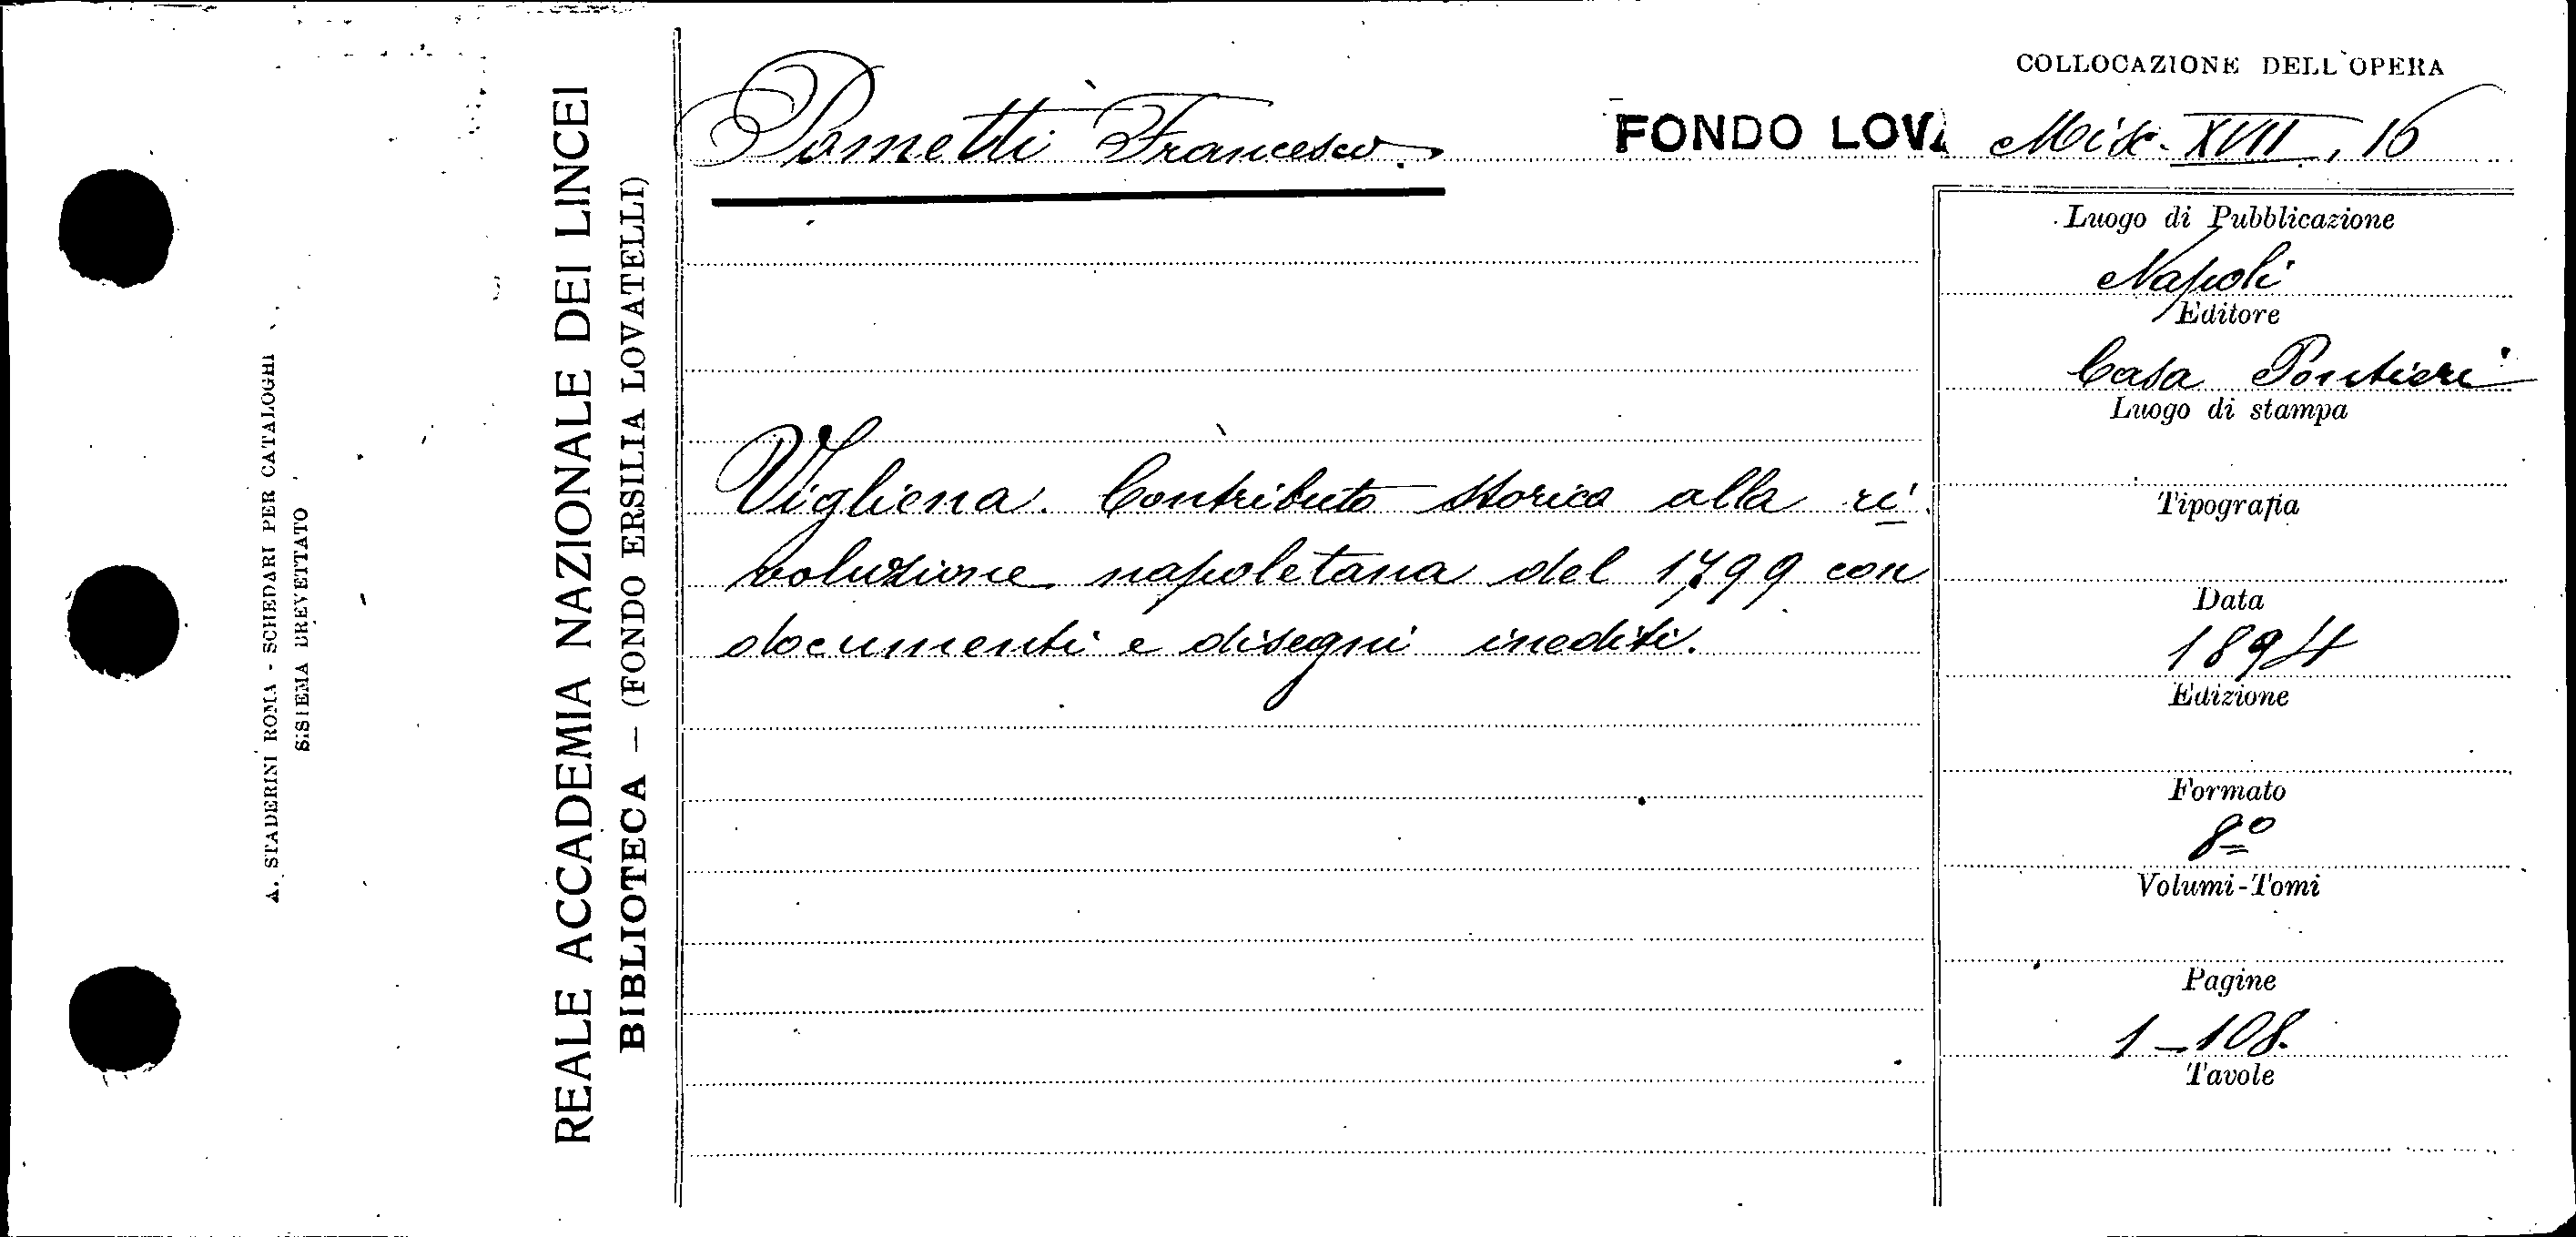 A. STADERINI ROMA - SCHEDARI PER CATALOGHI
SISTEMA BREVETTATO
REALE ACCADEMIA NAZIONALE DEI LINCEI
BIBLIOTECA — (FONDO ERSILIA LOVATELLI)
Pometti Francesco.
FONDO LOVA
COLLOCAZIONE DELL'OPERA
Misc. XVII, 16
Vigliena. Contributo storico alla ri-
voluzione napoletana del 1799 con
documenti e disegni inediti.
Luogo di Pubblicazione
Napoli
Editore
Casa Pontieri
Luogo di stampa
Tipografia
Data
1894
Edizione
Formato
8º
Volumi-Tomi
Pagine
1-108.
Tavole